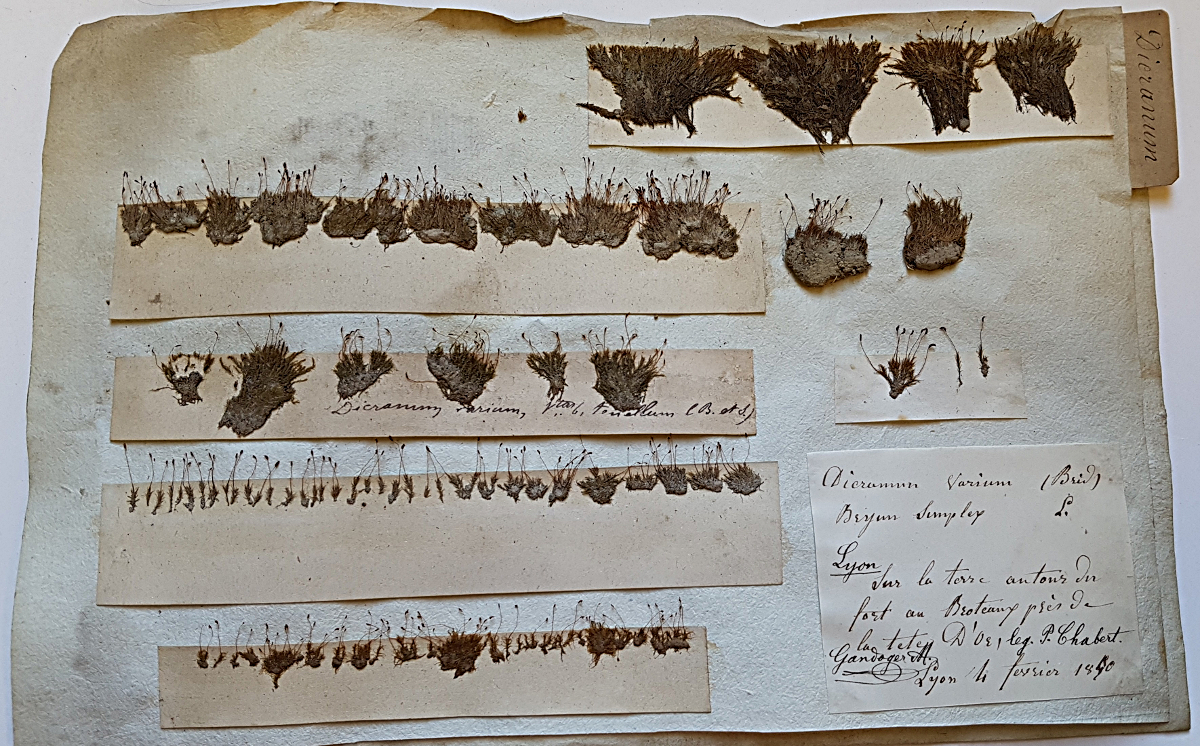 Dicranum
Dicranum varium, Var. b, tenellum (B. et S.)
Dicranum Varium (Brid)
Bryum Simplex L.
Lyon
Sur la terre autour du
fort au Broteaux près de
la tete D'Or, leg. P. Chabert.
Gandoger M.
Lyon 4 fevrier